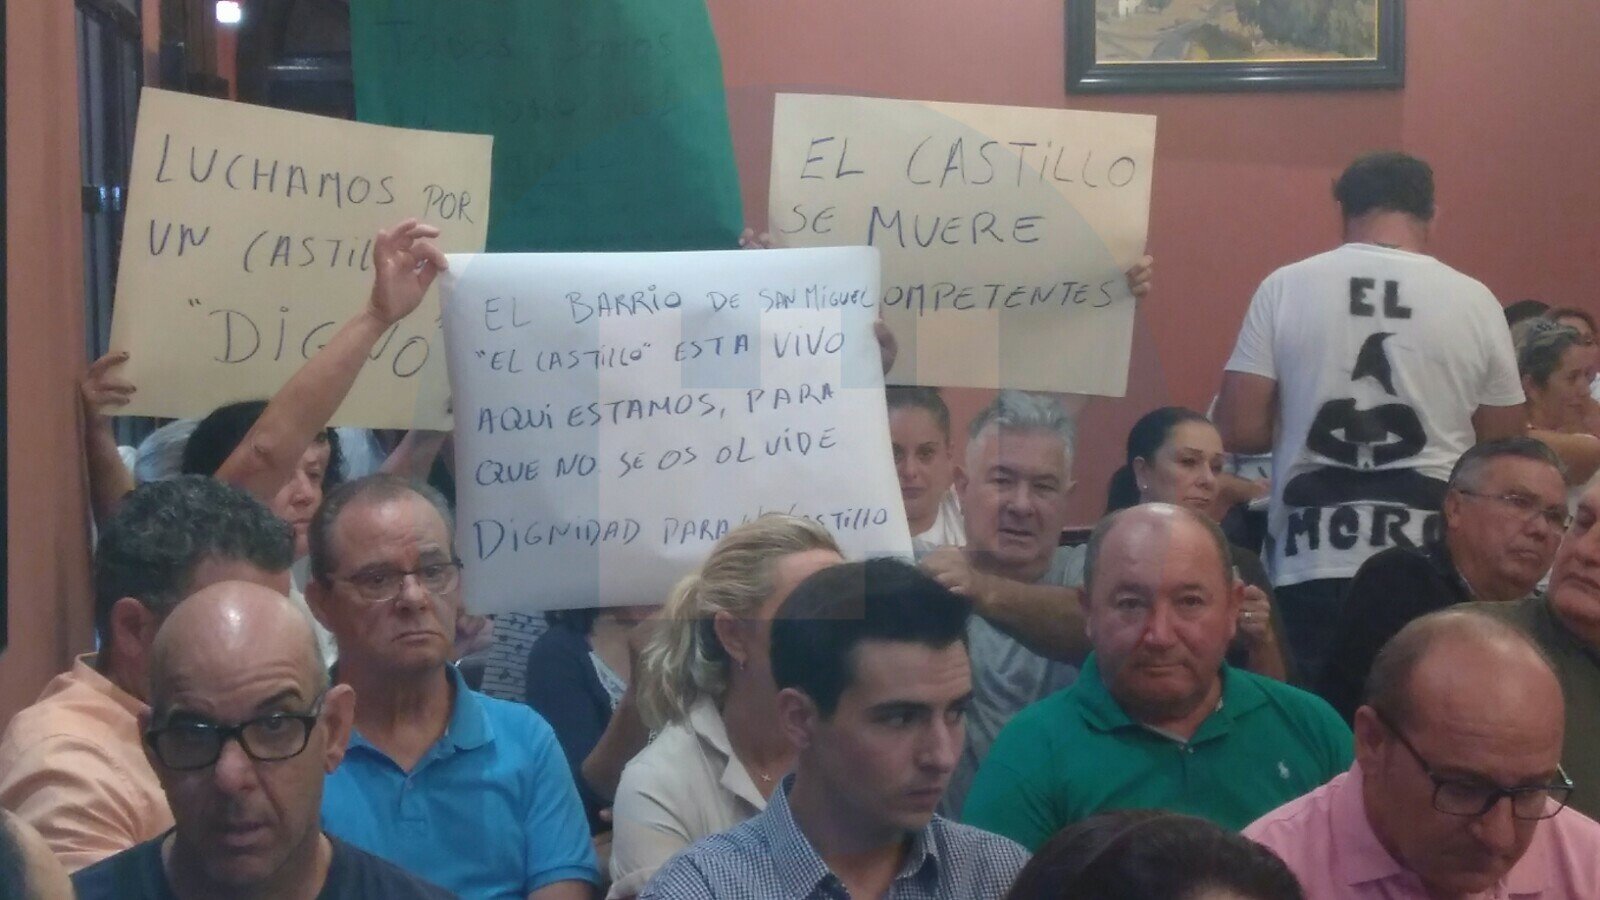 Todos somos
LUCHAMOS POR
UN CASTIL
"DIGNO"
EL CASTILLO
SE MUERE
OMPETENTES
EL BARRIO DE SAN MIGUEL
"EL CASTILLO" ESTA VIVO
AQUI ESTAMOS, PARA
QUE NO SE OS OLVIDE
DIGNIDAD PARA
EL
MORO